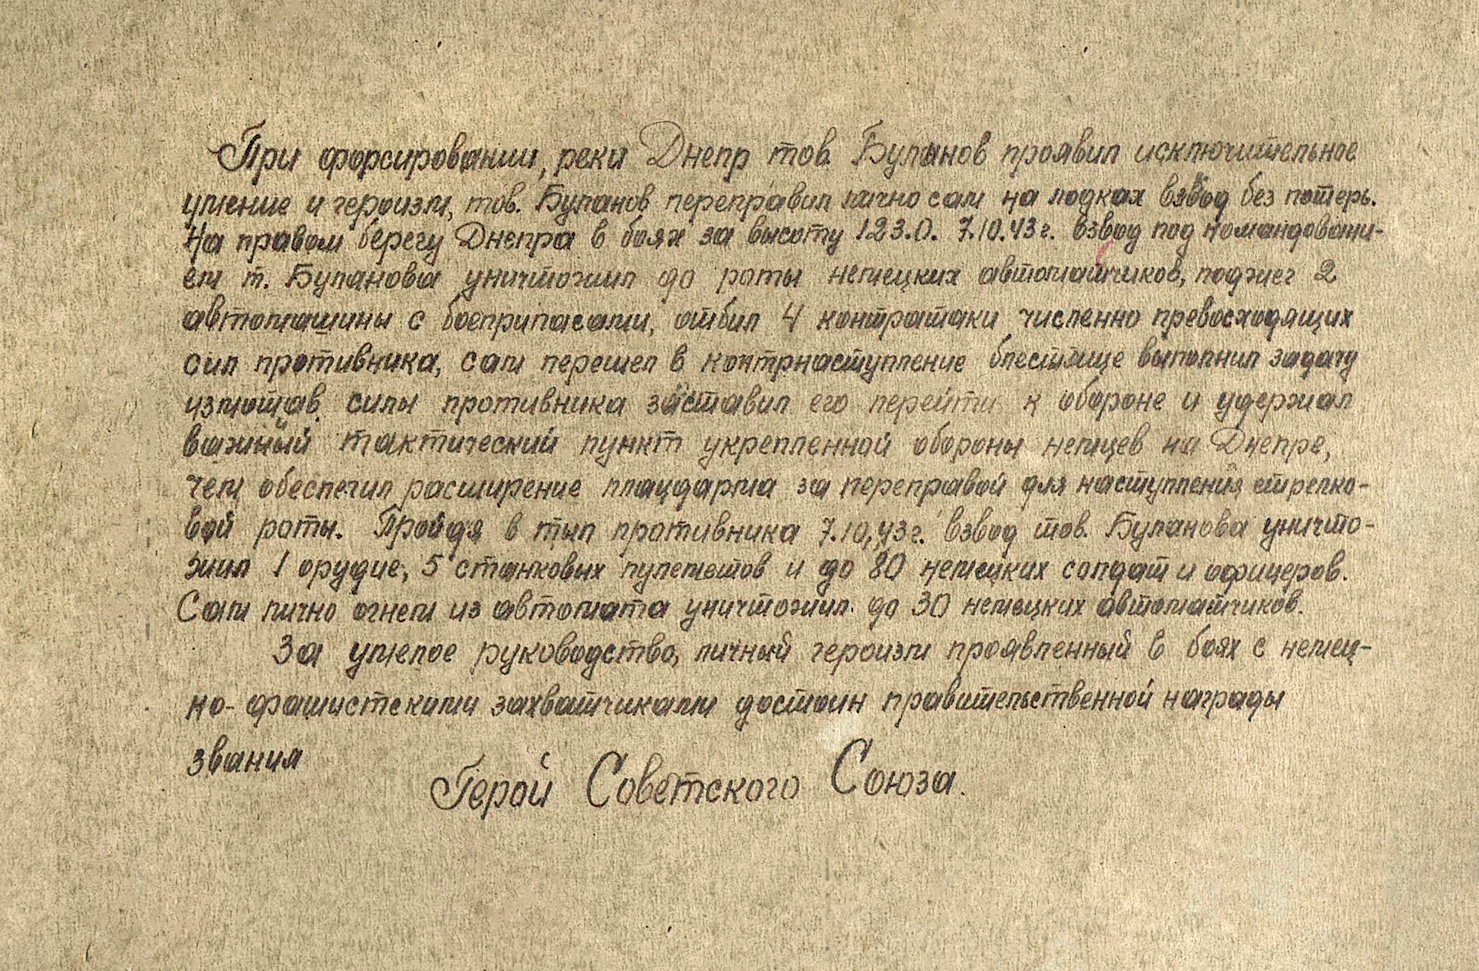 При форсировании, реки Днепр тов. Буланов проявил исключительное
умение и героизм, тов. Буланов переправил лично сам на лодках взвод без потерь.
На правом берегу Днепра в боях за высоту 123.0. 7.10.43 г. взвод под командовани-
ем т. Буланова уничтожил до роты немецких автоматчиков, поджег 2
автомашины с боеприпасами, отбил 4 контратаки численно превосходящих
сил противника, сам перешел в контрнаступление блестяще выполнил задачу
измотав силы противника заставил его перейти к обороне и удержал
важный тактический пункт укрепленной обороны немцев на Днепре,
чем обеспечил расширение плацдарма за переправой для наступления стрелко-
вой роты. Пройдя в тыл противника 7.10.43 г. взвод тов. Буланова уничто-
жил 1 орудие, 5 станковых пулеметов и до 80 немецких солдат и офицеров.
Сам лично огнем из автомата уничтожил до 30 немецких автоматчиков.
За умелое руководство, личный героизм проявленный в боях с немец-
ко-фашистскими захватчиками достоин правительственной награды
звания
Герой Советского Союза.